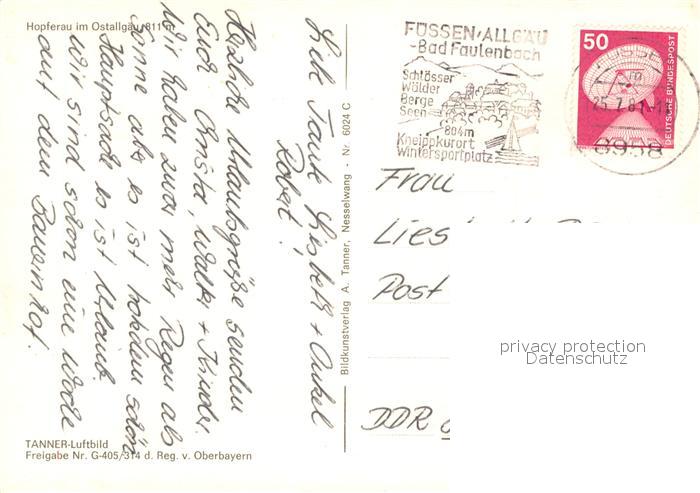 Hopferau im Ostallgäu, 811 m
Lieb Tante Lisbeth + Onkel
Robert!
Herzliche Urlaubsgrüße senden
Euch Christa, Walter + Kinder.
Wir haben zwar mehr Regen als
Sonne aber es ist trotzdem schön
Hauptsache es ist Urlaub.
Wir sind schon eine Woche
auf dem Bauernhof.
TANNER-Luftbild
Freigabe Nr. G-405/314 d. Reg. v. Oberbayern
Bildkunstverlag A. Tanner, Nesselwang - Nr. 6024 C
FÜSSEN/ALLGÄU
-Bad Faulenbach
Schlösser
Wälder
Berge
Seen
804m
Kneippkurort
Wintersportplatz
50
DEUTSCHE BUNDESPOST
FÜSSEN
25.7.81
8958
Frau
Lies
Post
DDR
privacy protection
Datenschutz